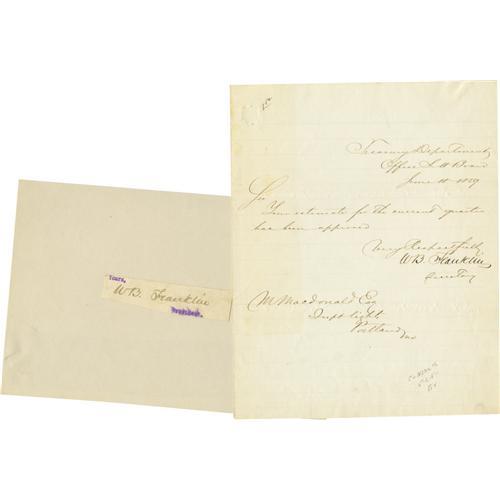 Treasury Department
Office L. H. Board
June 10 1859
Sir
Your estimate for the current quarter
has been approved
Very Respectfully
W.B. Franklin
Secretary
M Macdonald Esq
Supt lights
Portland
Me
Yours,
W.B. Franklin
President.